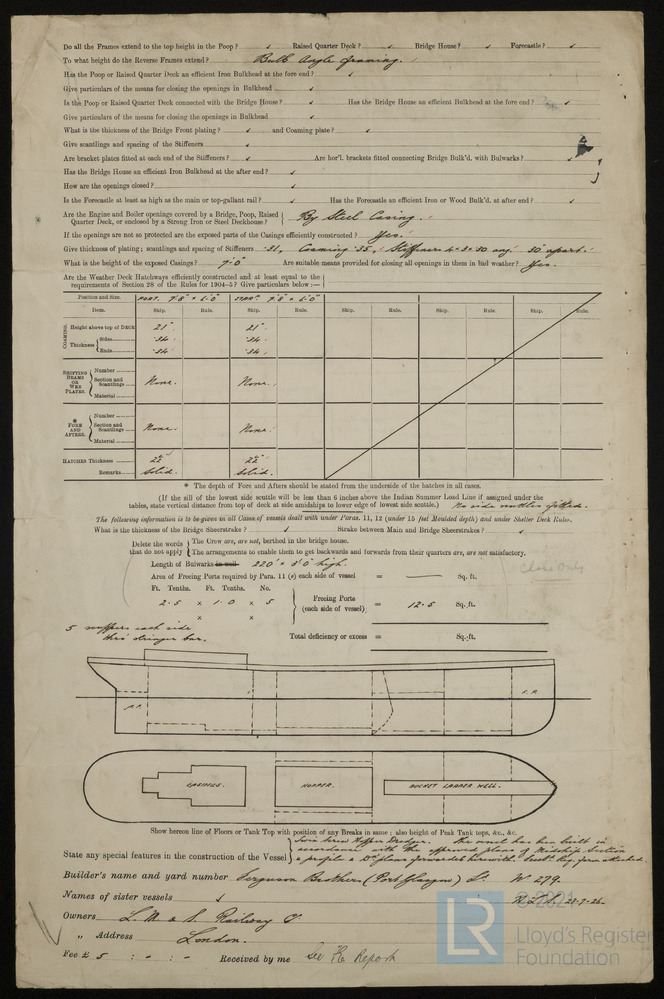 Do all the Frames extend to the top height in the Poop? ✓ Raised Quarter Deck? ✓ Bridge House? ✓ Forecastle? ✓
To what height do the Reverse Frames extend? Bulb Angle framing.
Has the Poop or Raised Quarter Deck an efficient Iron Bulkhead at the fore end? ✓
Give particulars of the means for closing the openings in Bulkhead ✓
Is the Poop or Raised Quarter Deck connected with the Bridge House? ✓ Has the Bridge House an efficient Bulkhead at the fore end? ✓
Give particulars of the means for closing the openings in Bulkhead ✓
What is the thickness of the Bridge Front plating? ✓ and Coaming plate? ✓
Give scantlings and spacing of the Stiffeners ✓
Are bracket plates fitted at each end of the Stiffeners? ✓ Are hor'l. brackets fitted connecting Bridge Bulk'd. with Bulwarks? ✓
Has the Bridge House an efficient Iron Bulkhead at the after end? ✓
How are the openings closed? ✓
Is the Forecastle at least as high as the main or top-gallant rail? ✓ Has the Forecastle an efficient Iron or Wood Bulk'd. at after end? ✓
Are the Engine and Boiler openings covered by a Bridge, Poop, Raised Quarter Deck, or enclosed by a Strong Iron or Steel Deckhouse? By Steel Casing.
If the openings are not so protected are the exposed parts of the Casings efficiently constructed? Yes.
Give thickness of plating; scantlings and spacing of Stiffeners .31, Coaming .35, Stiffeners 4×3×.30 ang. 30" apart.
What is the height of the exposed Casings? 7'.0" Are suitable means provided for closing all openings in them in bad weather? Yes.
Are the Weather Deck Hatchways efficiently constructed and at least equal to the
requirements of Section 28 of the Rules for 1904-5? Give particulars below:—
Position and Size. PORT. STARD.
Item. Ship. Rule. Ship. Rule. Ship. Rule. Ship. Rule. Ship. Rule.
COAMING. Height above top of DECK 21". 21".
Thickness Sides .34 .34
Ends .34 .34
SHIFTING BEAMS OR WEB PLATES. Number
Section and Scantlings None. None.
Material
* FORE AND AFTERS. Number
Section and Scantlings None. None.
Material
HATCHES Thickness 2½" 2½"
Remarks Solid. Solid.
* The depth of Fore and Afters should be stated from the underside of the hatches in all cases.
(If the sill of the lowest side scuttle will be less than 6 inches above the Indian Summer Load Line if assigned under the
tables, state vertical distance from top of deck at side amidships to lower edge of lowest side scuttle.) No side scuttles fitted.
The following information is to be given in all Cases of vessels dealt with under Paras. 11, 12 (under 15 feet Moulded depth) and under Shelter Deck Rules.
What is the thickness of the Bridge Sheerstrake? ✓ Strake between Main and Bridge Sheerstrakes? ✓
Delete the words that do not apply { The Crew are, are not, berthed in the bridge house.
The arrangements to enable them to get backwards and forwards from their quarters are, are not satisfactory.
Length of Bulwarks in well 220' × 3'.0" high. Class Only
Area of Freeing Ports required by Para. 11 (e) each side of vessel = — Sq. ft.
Ft. Tenths. Ft. Tenths. No.
2.5 × 1.0 × 5 Freeing Ports (each side of vessel) = 12.5 Sq. ft.
× ×
5 scuppers each side
thro' stringer bar. Total deficiency or excess = Sq. ft.
A.P. F.P.
CASINGS. HOPPER. BUCKET LADDER WELL.
Show hereon line of Floors or Tank Top with position of any Breaks in same; also height of Peak Tank tops, &c., &c.
State any special features in the construction of the Vessel { Twin Screw Hopper Dredger. The vessel has been built in
accordance with the approved plans of Midship Section
& profile & Dk plans forwarded herewith.
Builder's name and yard number Ferguson Brothers (Port Glasgow) Ld. No 279.
Names of sister vessels ✓
Owners L. M. & S. Railway Co
" Address London.
Fee £ 5 : " : " Received by me See F.E. Report
© 2021
LR
Lloyd's Register
Foundation